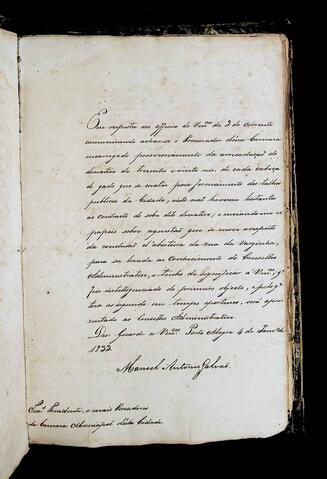 Em resposta ao officio de Vm.ces de 3 do corrente
communicando achar-se o Procurador dessa Camara
encarregado provisoriamente da arrecadação do
donativo de trezentos e vinte reis, de cada cabeça
de gado que se matar para fornecimento dos talhos
publicos da Cidade, visto não haverem licitantes
ao contracto do sobre dito donativo, e enviando-me os
papeis sobre questão que se move a respeito
da conclusão d'abertura da rua da Varginha,
para ser levada ao Conhecimento do Conselho
Administrativo, tenho de significar a Vm.ces q
fico intelligenciado do primeiro objecto, e pelo q
toca ao segundo em tempo opportuno, será apre
sentado ao Conselho Administrativo.
Deos Guarde a Vm.ces Porto Alegre 4 de Janr.o de
1833
Manoel Antonio Galvão
Snr.s Presidente, e mais Vereadores
da Camara Municipal desta Cidade.